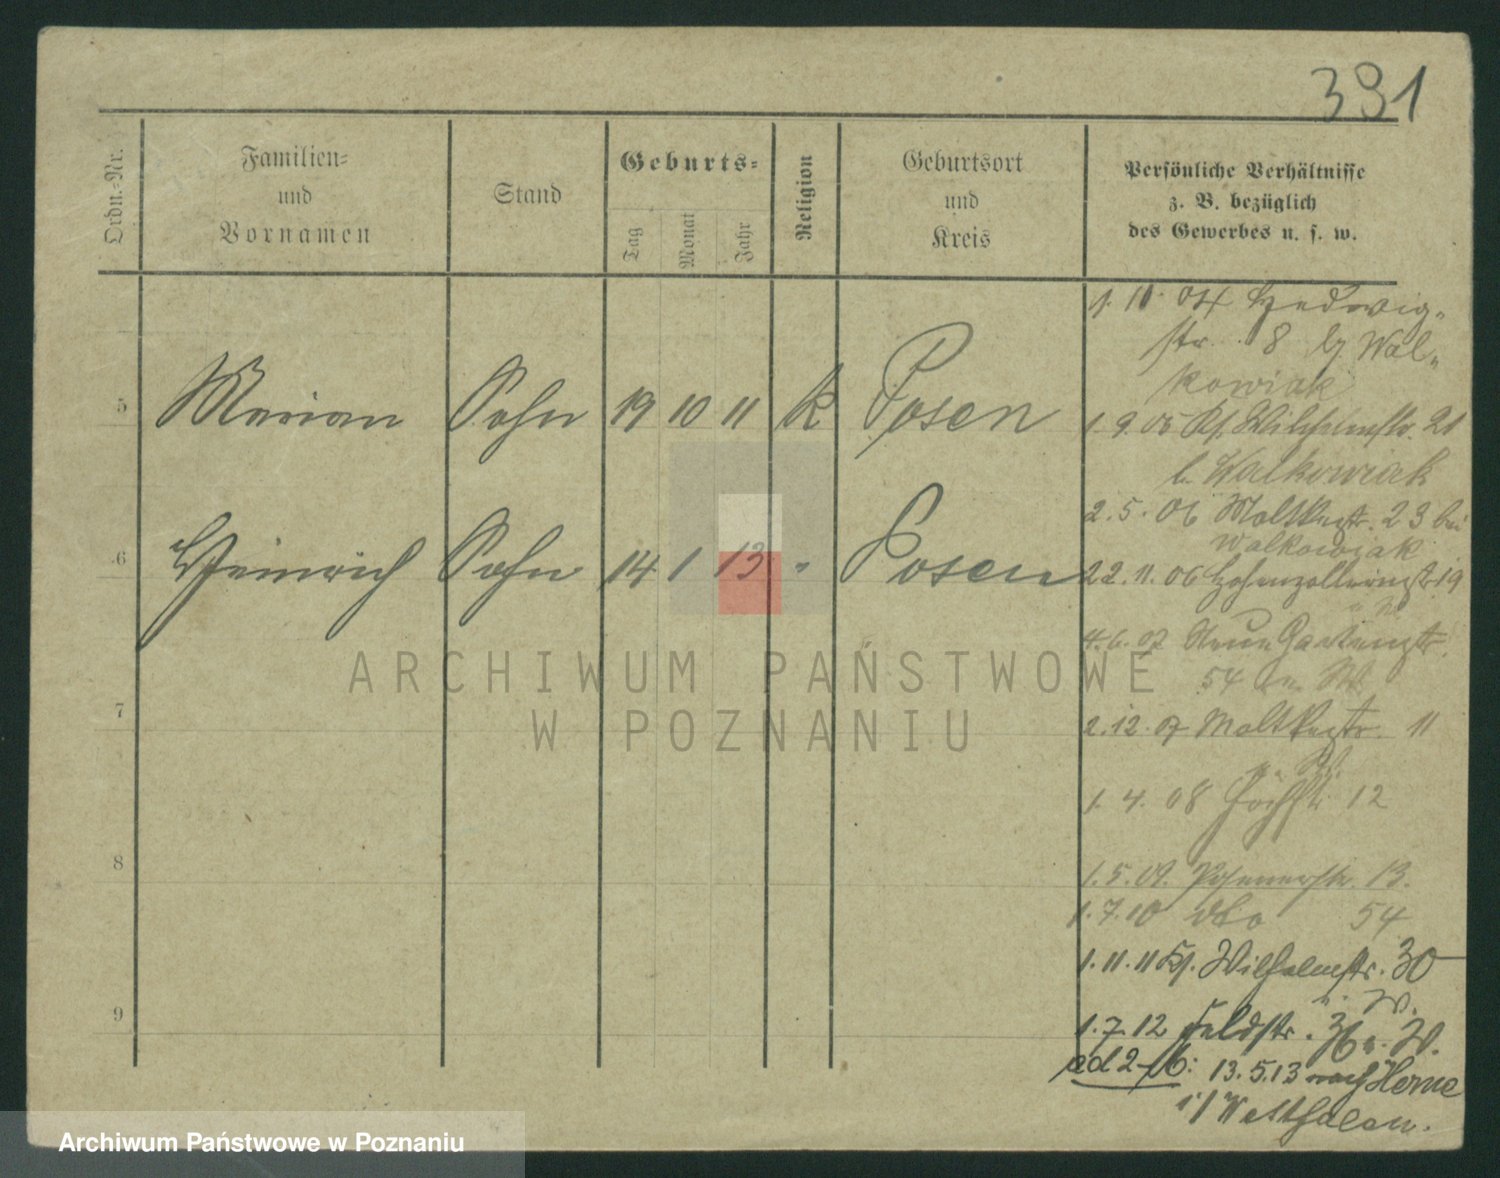 391
Ordn.-Nr.
Familien-
und
Vornamen
Stand
Geburts-
Tag
Monat
Jahr
Religion
Geburtsort
und
Kreis
Persönliche Verhältnisse
z. B. bezüglich
des Gewerbes u. s. w.
5 Marian Sohn 19 10 11 k Posen
6 Heinrich Sohn 14 1 13 " Posen
7
8
9
1. 11. 04 Hedwig-
str. 8 bei Wal-
kowiak
1. 9. 05 Kl. Wilhelmstr. 21
b. Walkowiak
2. 5. 06 Moltkestr. 23 bei
Walkowiak
22. 11. 06 Hohenzollernstr. 19
4. 6. 07 Neue Gartenstr.
54 W.
2. 12. 07 Moltkestr. 11
W.
1. 4. 08 12
1. 5. 09. Posenerstr. 13.
1. 7. 10 dto 54
1. 11. 11 Kl. Wilhelmstr. 30
W.
1. 7. 12 Feldstr. W.
ad 2-6: 13. 5. 13 nach Herne
i/Westfalen.
ARCHIWUM PAŃSTWOWE
W POZNANIU
Archiwum Państwowe w Poznaniu